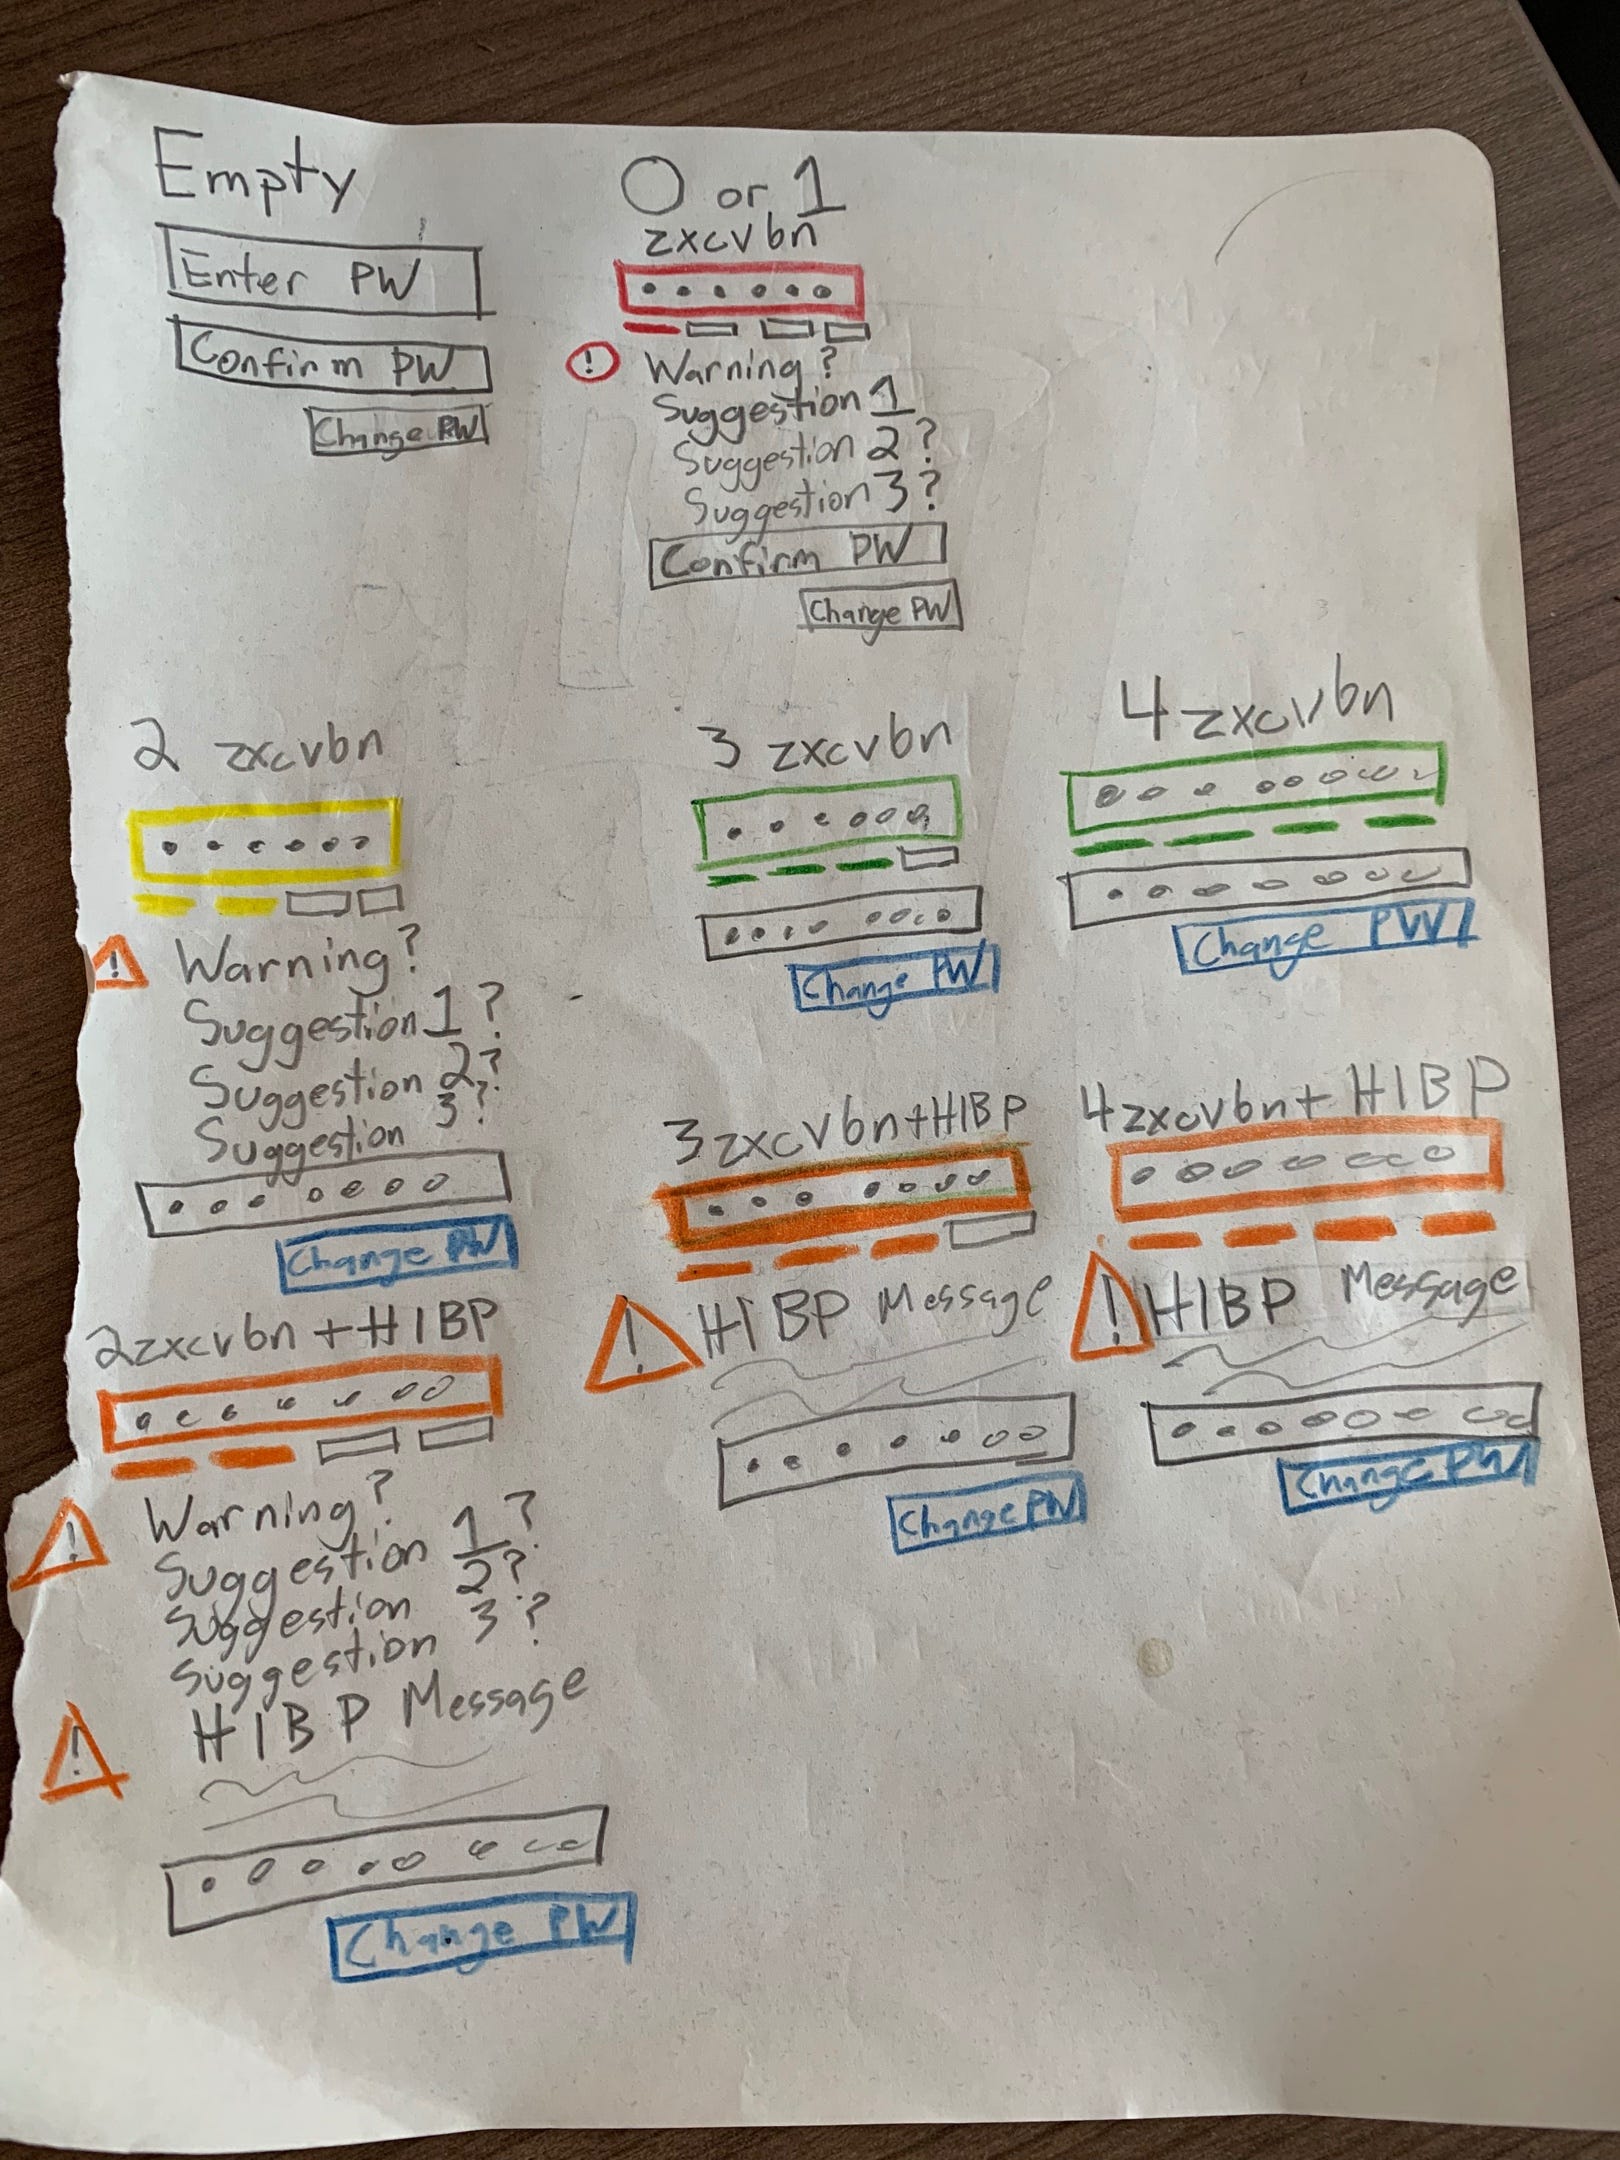 Empty
Enter PW
Confirm PW
Change PW
0 or 1
zxcvbn
! Warning?
Suggestion 1
Suggestion 2?
Suggestion 3?
Confirm PW
Change PW
2 zxcvbn
! Warning?
Suggestion 1?
Suggestion 2?
Suggestion 3?
Change PW
3 zxcvbn
Change PW
4 zxcvbn
Change PW
2 zxcvbn + HIBP
! Warning?
Suggestion 1?
Suggestion 2?
Suggestion 3?
! HIBP Message
Change PW
3 zxcvbn + HIBP
! HIBP Message
Change PW
4 zxcvbn + HIBP
! HIBP Message
Change PW